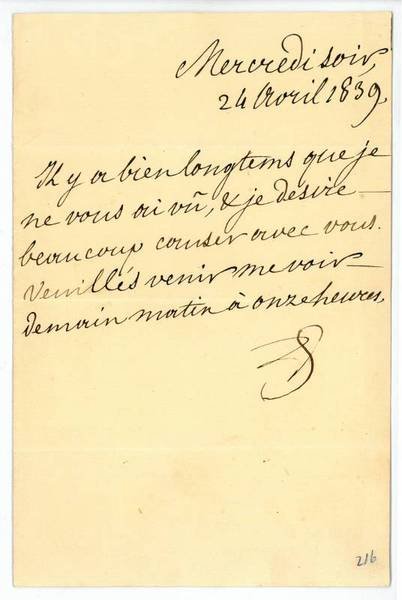 Mercredi soir,
24 Avril 1839.
Il y a bien longtems que je
ne vous ai vû, & je désire —
beaucoup causer avec vous.
Veuillés venir me voir —
demain matin à onze heures,
216